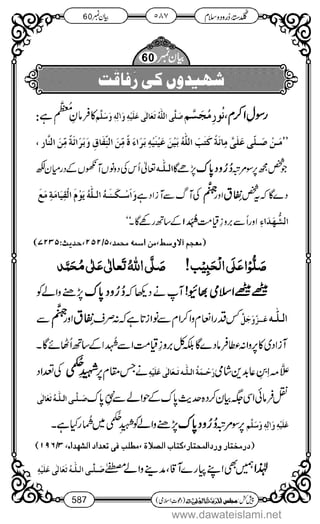 گلدستۂ درود و سلام ٥٨٧ بیان نمبر 60
بیان نمبر 60
شہیدوں کی رفاقت
رسولِ اکرم، نورِ مُجَسَّم صَلَّی اللہُ تَعَالٰی عَلَیْہِ وَاٰلِہٖ وَسَلَّم کا فرمانِ مُعَظَّم ہے:
’’مَنْ صَلّٰی عَلَیَّ مِائَۃً کَتَبَ اللہُ بَیْنَ عَیْنَیْہِ بَرَاءَۃً مِّنَ النِّفَاقِ وَبَرَاءَۃً مِّنَ النَّارِ ،
جو شخص مجھ پر سو مرتبہ دُرُودِ پاک پڑھے گا اللہ تعالٰی اُس کی دونوں آنکھوں کے درمیان لکھ
دے گا کہ یہ شخص نِفاق اور جہنم کی آگ سے آزاد ہے وَاَسْکَنَہُ اللہُ یَوْمَ الْقِیَامَۃِ مَعَ
الشُّہَدَاءِ اور اُسے بروزِ قیامت شُہَدا کے ساتھ رکھے گا۔‘‘
(معجم الاوسط،من اسمہ محمد،٢٥٢/٥،حدیث:٧٢٣٥)
صَلُّوْا عَلَی الْحَبِیْب! صَلَّی اللہُ تَعَالٰی عَلٰی مُحَمَّد
میٹھے میٹھے اسلامی بھائیو! آپ نے دیکھا کہ دُرُودِ پاک پڑھنے والے کو
اللہ عَزَّوَجَلَّ کس قدر انعام و اکرام سے نوازتا ہے کہ نہ صرف نِفاق اور جہنم سے
آزادی کا پروانہ عطا فرمائے گا بلکہ کل بروزِ قیامت اسے شُہَدا کے ساتھ اُٹھائے گا۔
علّامہ ابنِ عابدین شامی رَحْمَۃُ اللہِ تَعَالٰی عَلَیْہِ نے جس مقام پر شہیدِ حکمی کی تعداد
نقل فرمائی اسی جگہ بیان کردہ حدیثِ پاک کے حوالے سے نبیِّ پاک صَلَّی اللہُ تَعَالٰی
عَلَیْہِ وَاٰلِہٖ وَسَلَّم پر سو مرتبہ دُرُودِ پاک پڑھنے والے کو شہیدِ حکمی میں شمار کیا ہے۔
(درمختار وردالمحتار،کتاب الصلاۃ ،مطلب فی تعداد الشہداء، ١٩٦/٣)
لہٰذا ہمیں بھی اپنے پیارے آقا، مدینے والے مصطفٰے صَلَّی اللہُ تَعَالٰی عَلَیْہِ
587
www.dawateislami.net